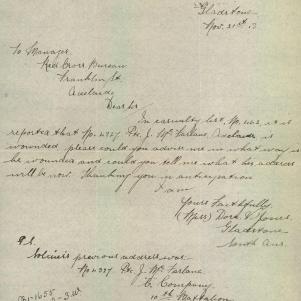 Gladstone
Nov. 21st
To Manager,
Red Cross Bureau
Franklin St
Adelaide
Dear Sir
In casualty list, No. 462, it is
reported that No. 4327 Pte. J. Mc Farlane, Adelaide is
wounded please could you advise me in what way is
he wounded and could you tell me what his address
will be now. Thanking you in anticipation
I am
Yours Faithfully
(Miss) Dora V. Jones.
Gladstone
South Aus.
P.S.
Soldier's previous address was
No 4327 Pte. J. Mc Farlane
C Company
10th Battalion